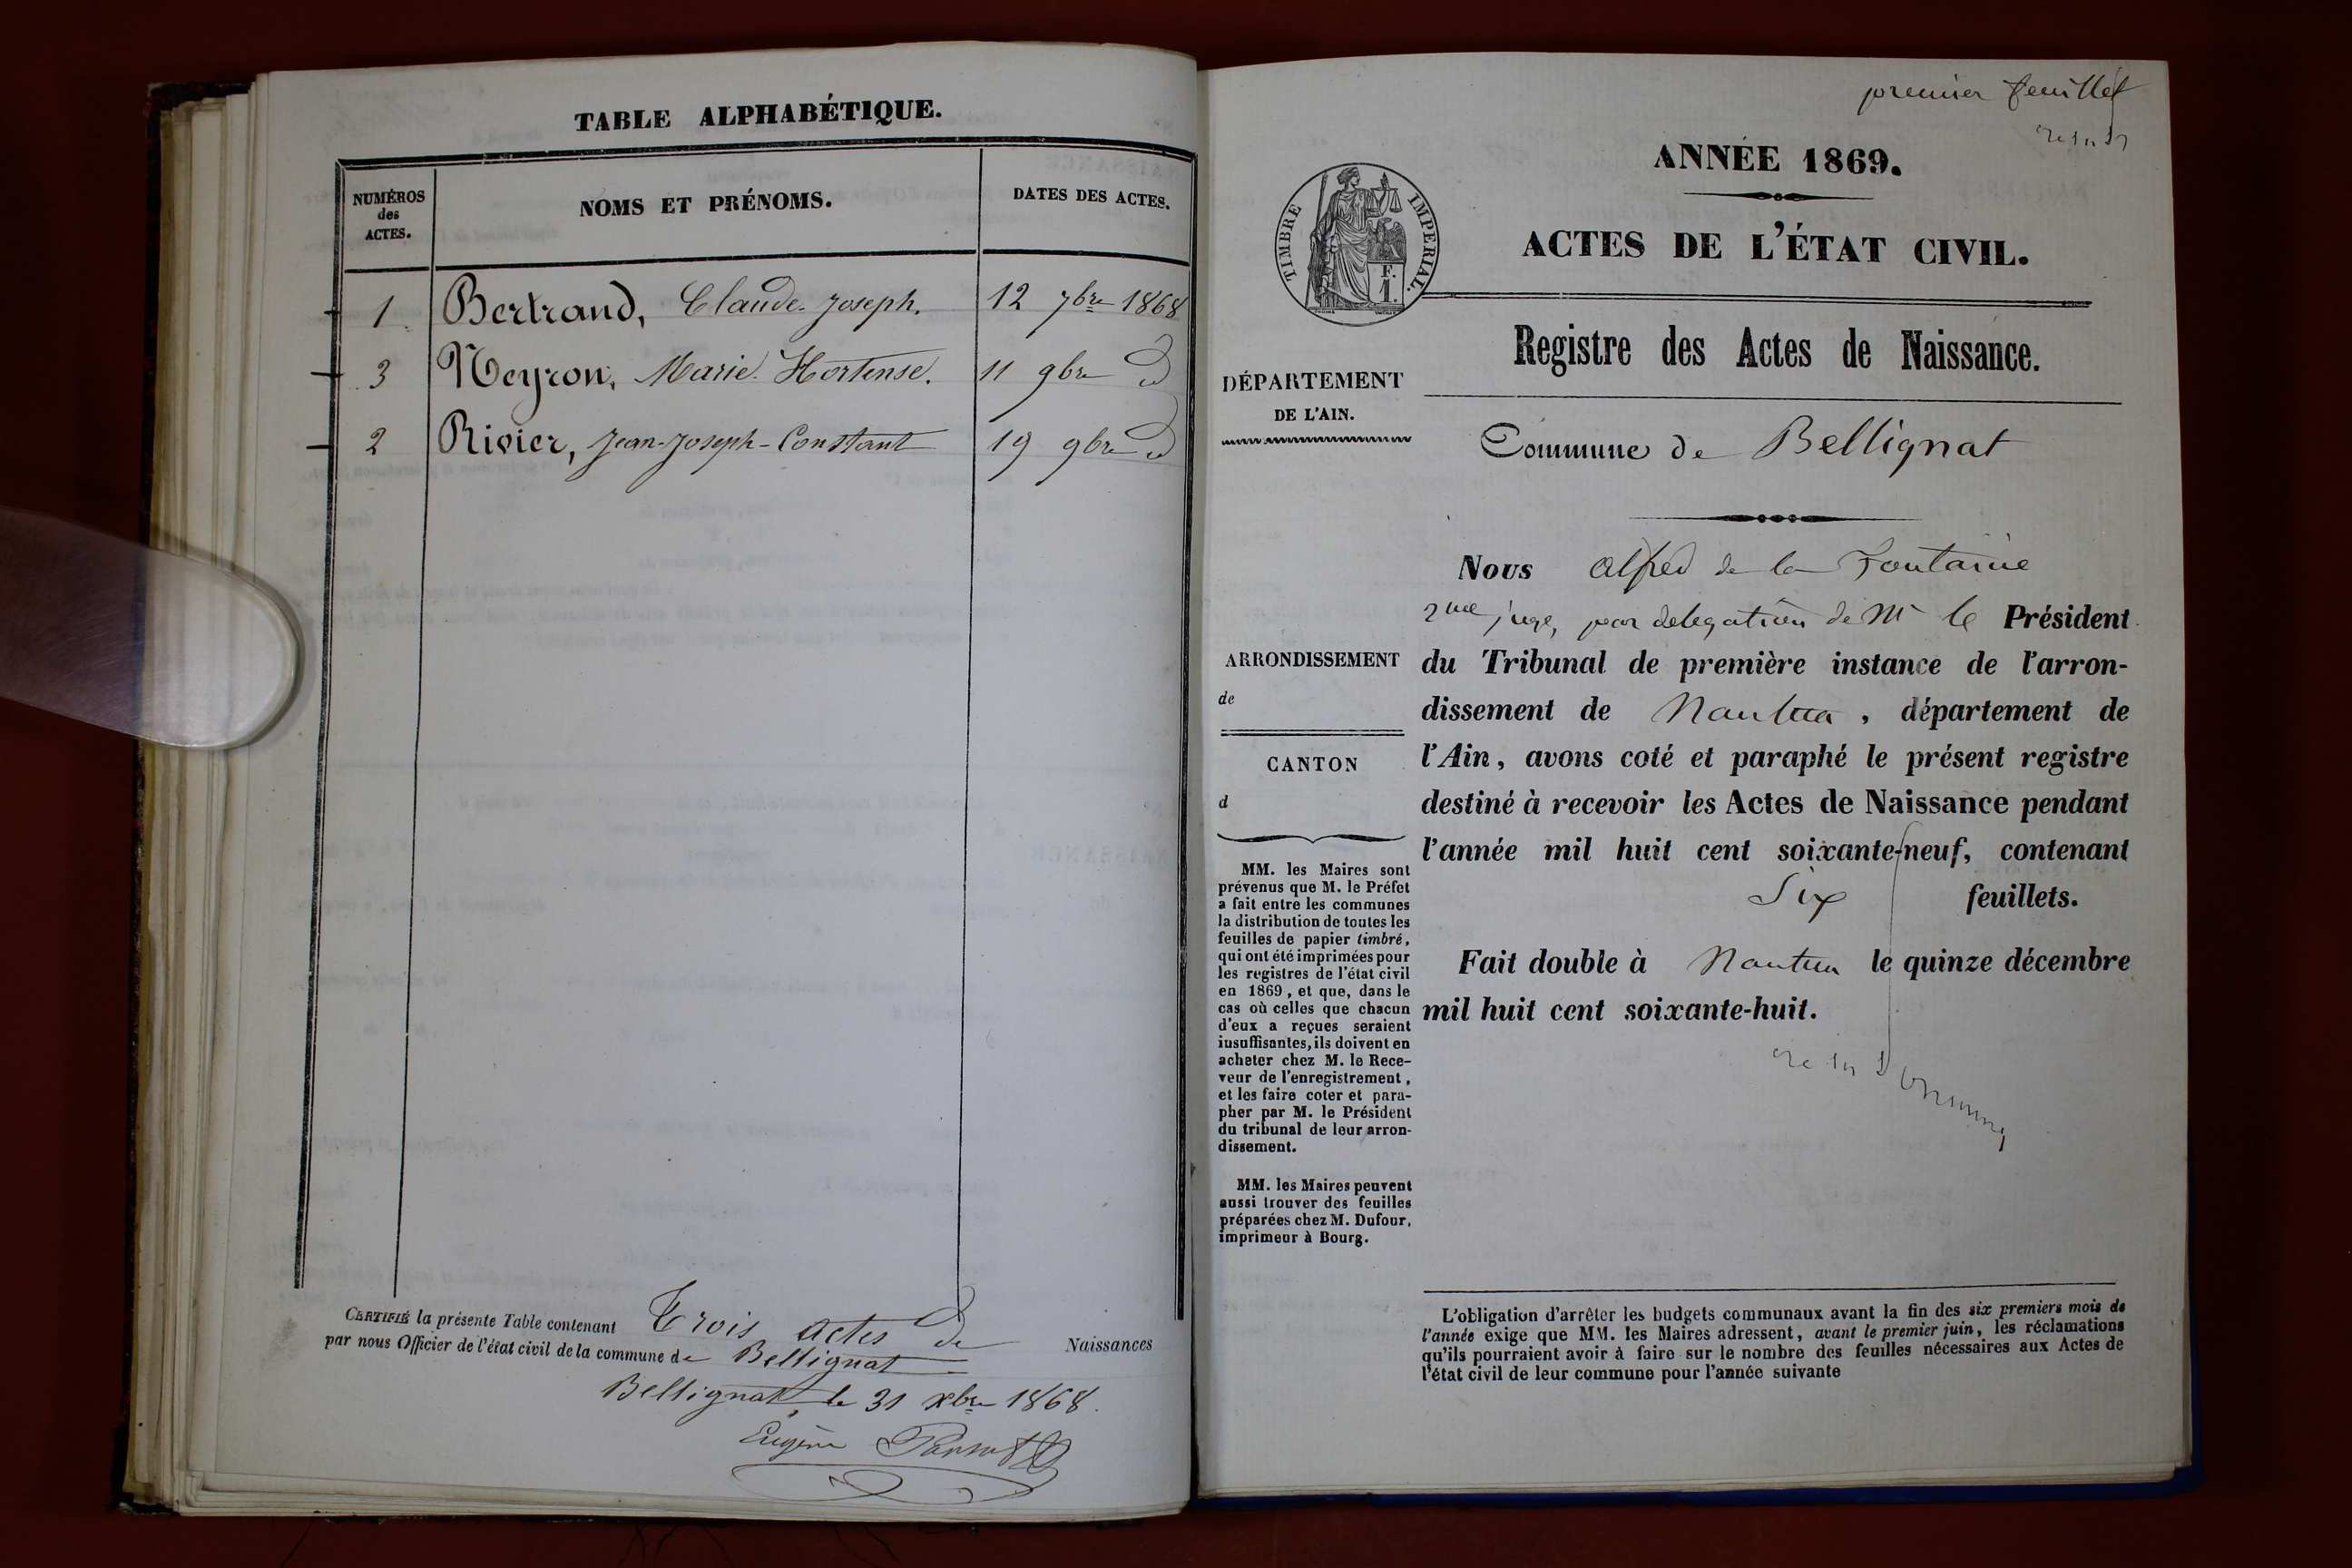 TABLE ALPHABÉTIQUE.
NUMÉROS
des
ACTES.
NOMS ET PRÉNOMS.
DATES DES ACTES.
1 Bertrand, Claude-Joseph. 12 7bre 1868
3 Neyron, Marie Hortense. 11 9bre d
2 Rivier, Jean-Joseph-Constant 19 9bre d
CERTIFIÉ la présente Table contenant Trois actes de Naissances
par nous Officier de l'état civil de la commune de Bellignat
Bellignat, le 31 Xbre 1868.
Eugène
premier feuillet
ANNÉE 1869.
TIMBRE IMPERIAL.
F.
1.
ACTES DE L'ÉTAT CIVIL.
Registre des Actes de Naissance.
DÉPARTEMENT
DE L'AIN.
Commune de Bellignat
Nous Alfred de la Fontaine
2me juge, par delegation de Mr le Président
du Tribunal de première instance de l'arron-
dissement de Nantua, département de
l'Ain, avons coté et paraphé le présent registre
destiné à recevoir les Actes de Naissance pendant
l'année mil huit cent soixante-neuf, contenant
Six feuillets.
Fait double à Nantua le quinze décembre
mil huit cent soixante-huit.
ARRONDISSEMENT
de
CANTON
d
MM. les Maires sont
prévenus que M. le Préfet
a fait entre les communes
la distribution de toutes les
feuilles de papier timbré,
qui ont été imprimées pour
les registres de l'état civil
en 1869, et que, dans le
cas où celles que chacun
d'eux a reçues seraient
insuffisantes, ils doivent en
acheter chez M. le Rece-
veur de l'enregistrement,
et les faire coter et para-
pher par M. le Président
du tribunal de leur arron-
dissement.
MM. les Maires peuvent
aussi trouver des feuilles
préparées chez M. Dufour,
imprimeur à Bourg.
L'obligation d'arrêter les budgets communaux avant la fin des six premiers mois de
l'année exige que MM. les Maires adressent, avant le premier juin, les réclamations
qu'ils pourraient avoir à faire sur le nombre des feuilles nécessaires aux Actes de
l'état civil de leur commune pour l'année suivante